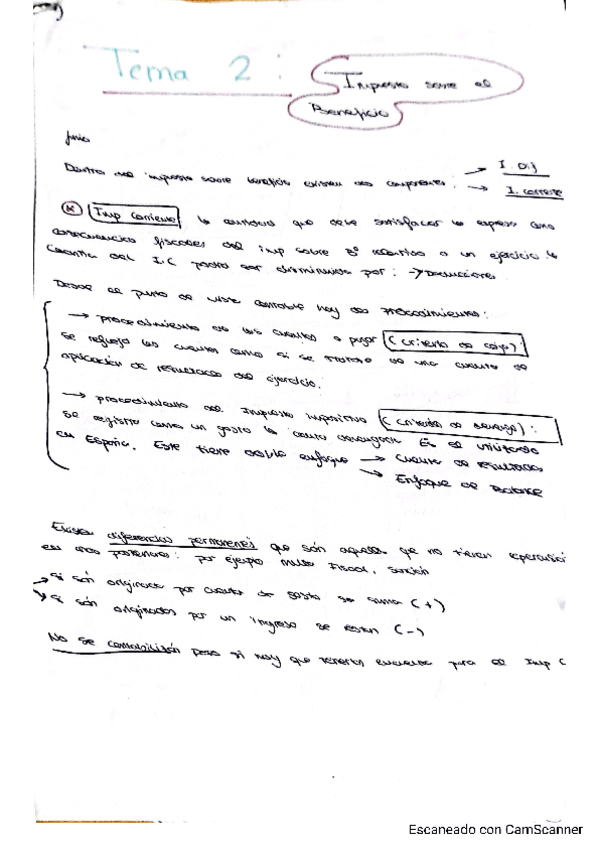 Tema 2: Impuesto sobre el
Beneficio
Dentro del impuesto sobre beneficio existen dos componentes: → I. Dif
→ I. corriente
* Imp corriente la cantidad que debe satisfacer la empresa como
consecuencias fiscales del imp sobre Bº relativos a un ejercicio. la
cuantía del I.C podrá ser disminuida por: → Deducciones.
Desde el punto de vista contable hay dos Procedimientos:
→ procedimiento de las cuentas a pagar (criterio de caja):
se refleja las cuentas como si se tratase de una cuenta de
aplicación de resultados del ejercicio.
→ procedimiento del Impuesto impositivo (criterio de devengo):
se registra como un gasto la cuota devengada. Es el utilizado
en España. Este tiene doble enfoque → Cuenta de resultados
→ Enfoque de Balance
Existen diferencias permanentes que són aquellas que no tienen
en años posteriores: por ejemplo multa Fiscal, sanción
→ si són originada por cuenta de gasto se suma (+)
→ si són originados por un ingreso se restan (-)
No se contabilizán pero si hay que tenerlos encuenta para el Imp C
Escaneado con CamScanner